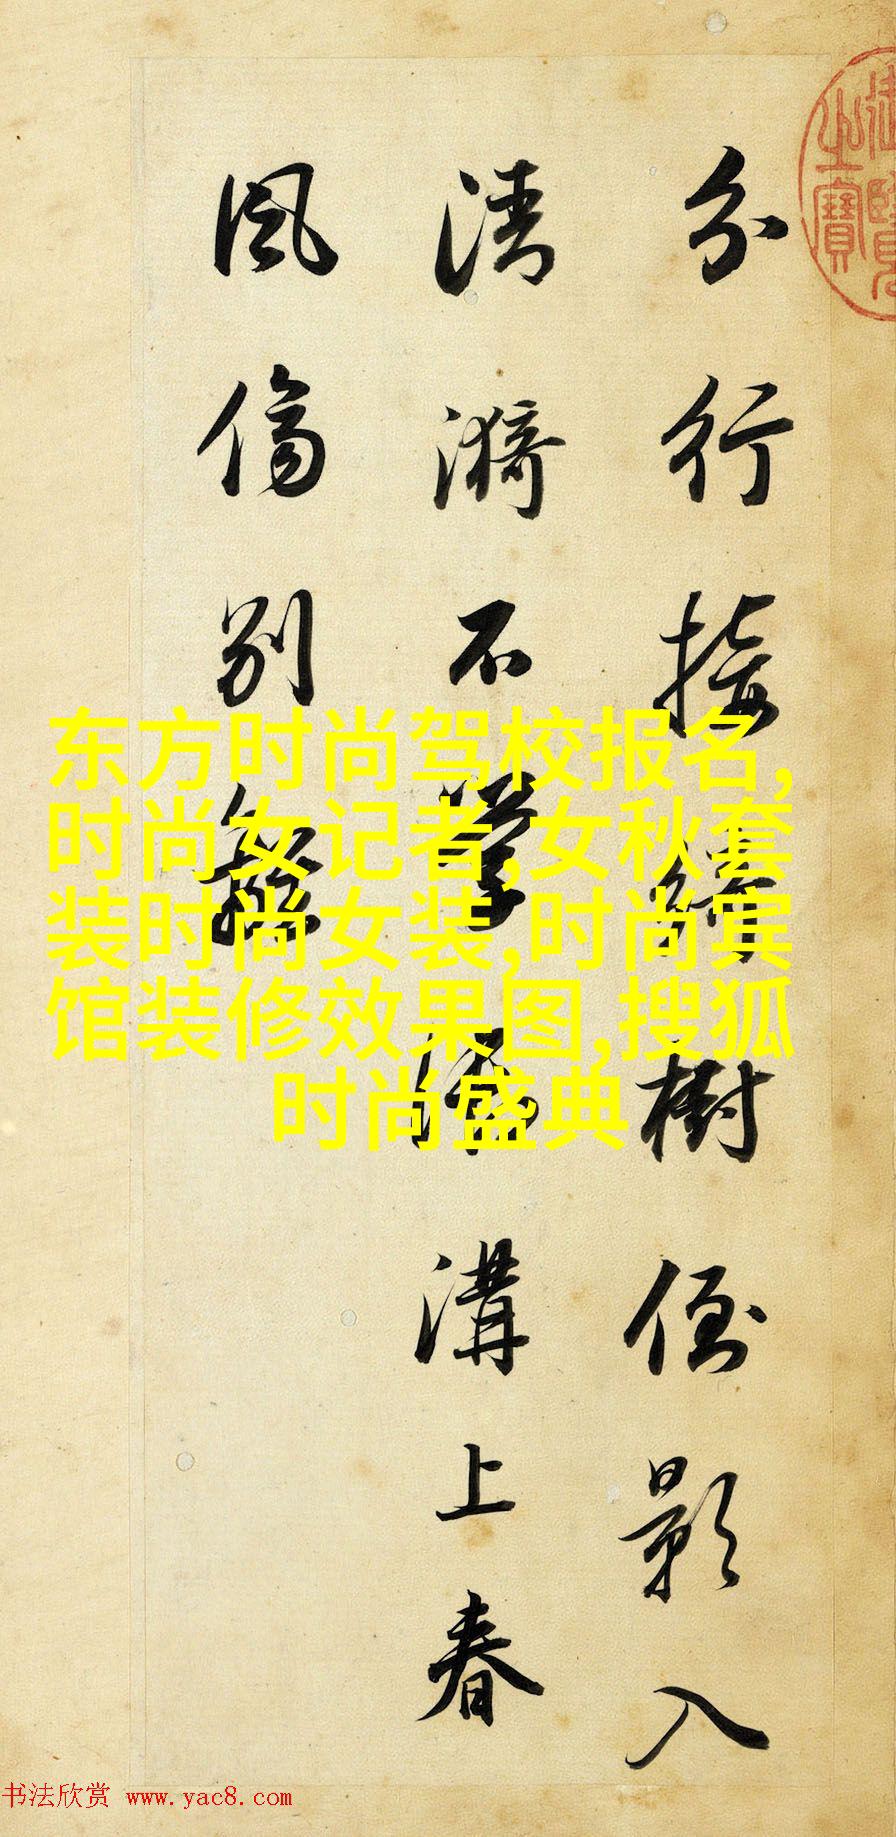 分行接綺樹倒影入
清漪不學御溝上春
風傷別離
东方时尚驾校报名,
时尚女记者,女秋套
装时尚女装,时尚宾
馆装修效果图,搜狐
时尚盛典
之寶
书法欣赏 www.yac8.com